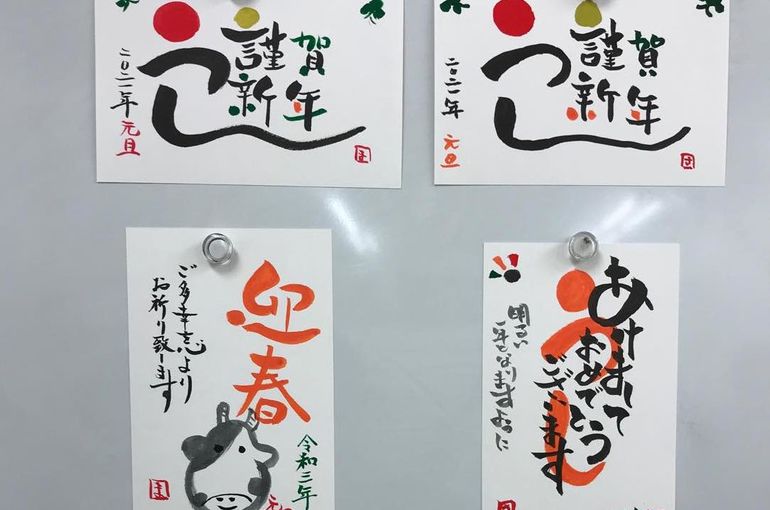 謹賀
新年
うし
二〇二一年 元旦
ま
謹賀
新年
うし
二〇二一年 元旦
迎春
ご多幸心より
お祈り致します
令和三年
ま
あけまして
おめでとう
ございます
うし
明るい
一年となりますように